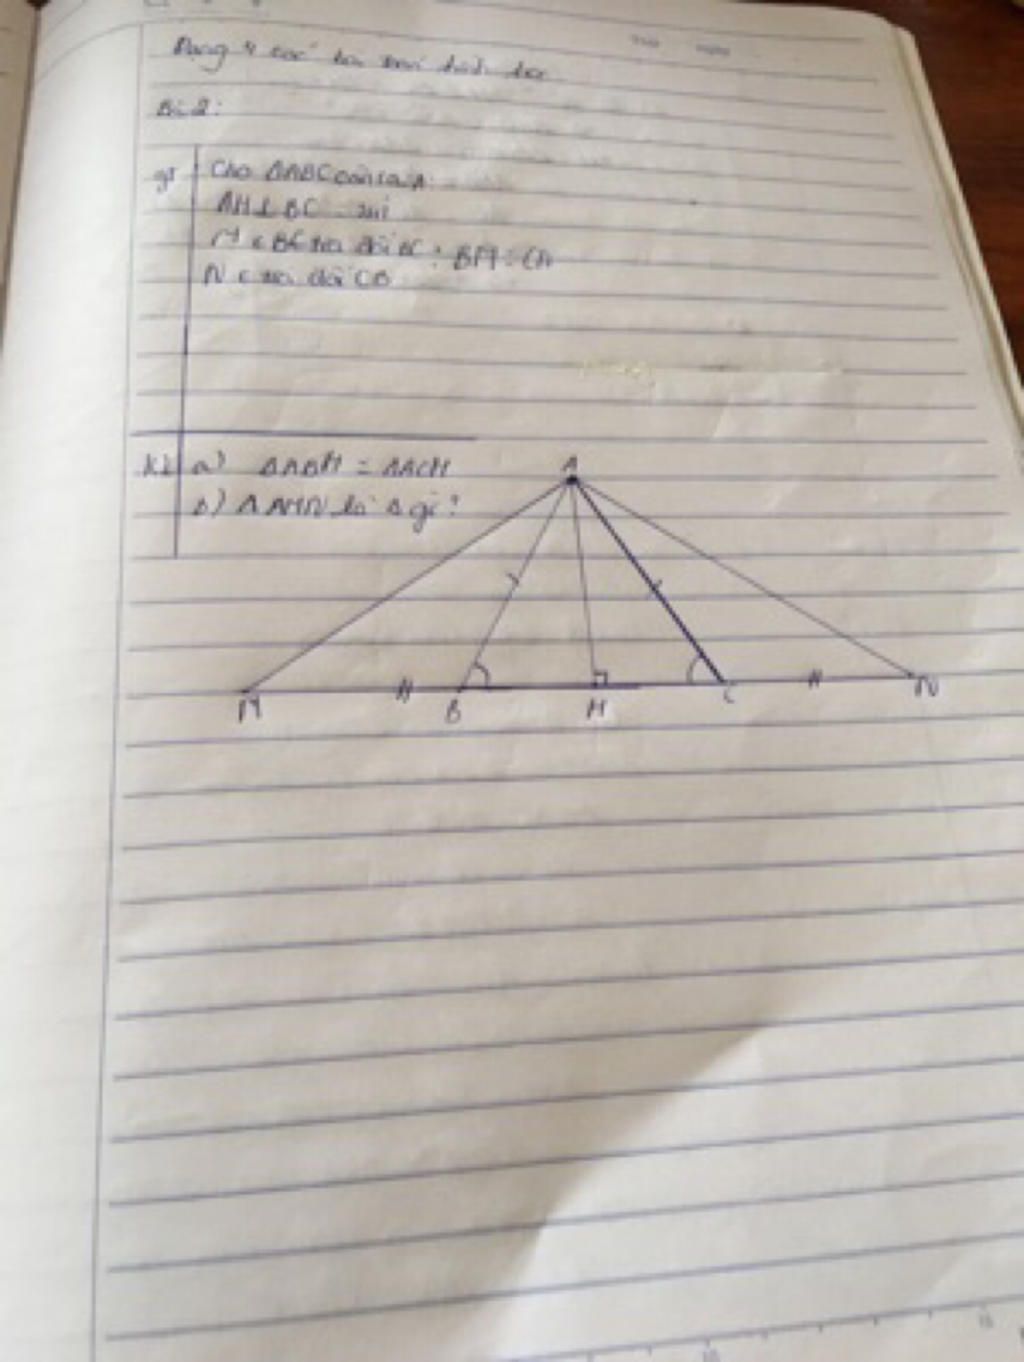 Dạng 4 các bài toán hình học
Bài 2:
gt Cho ΔABC cân tại A
AH ⊥ BC tại
M ∈ BC tia đối BC : BM = CN
N ∈ tia đối CB
KL a) ΔABH = ΔACH
b) ΔAMN là Δ gì?
A
M B H C N